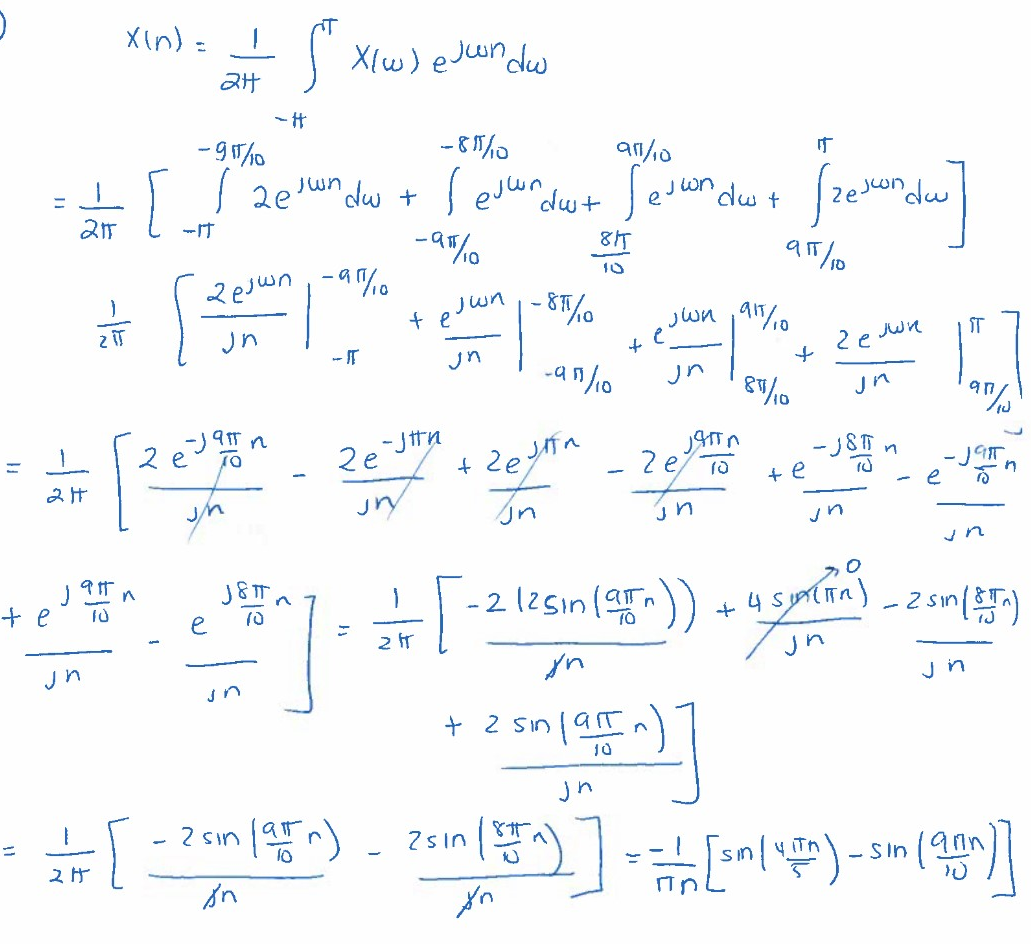 )
X(n) = 1/2π ∫_{-π}^{π} X(ω) e^{jωn} dω
= 1/2π [ ∫_{-π}^{-9π/10} 2e^{jωn} dω + ∫_{-9π/10}^{-8π/10} e^{jωn} dω + ∫_{8π/10}^{9π/10} e^{jωn} dω + ∫_{9π/10}^{π} 2e^{jωn} dω ]
1/2π [ 2e^{jωn}/jn |_{-π}^{-9π/10} + e^{jωn}/jn |_{-9π/10}^{-8π/10} + e^{jωn}/jn |_{8π/10}^{9π/10} + 2e^{jωn}/jn |_{9π/10}^{π} ]
= 1/2π [ 2e^{-j9π/10 n}/jn - 2e^{-jπn}/jn + 2e^{jπn}/jn - 2e^{j9π/10 n}/jn + e^{-j8π/10 n}/jn - e^{-j9π/10 n}/jn
+ e^{j9π/10 n}/jn - e^{j8π/10 n}/jn ] = 1/2π [ -2(2sin(9π/10 n))/jn + 4sin(πn)/jn → 0 - 2sin(8π/10 n)/jn
+ 2sin(9π/10 n)/jn ]
= 1/2π [ -2sin(9π/10 n)/jn - 2sin(8π/10 n)/jn ] = -1/πn [ sin(4πn/5) - sin(9πn/10) ]